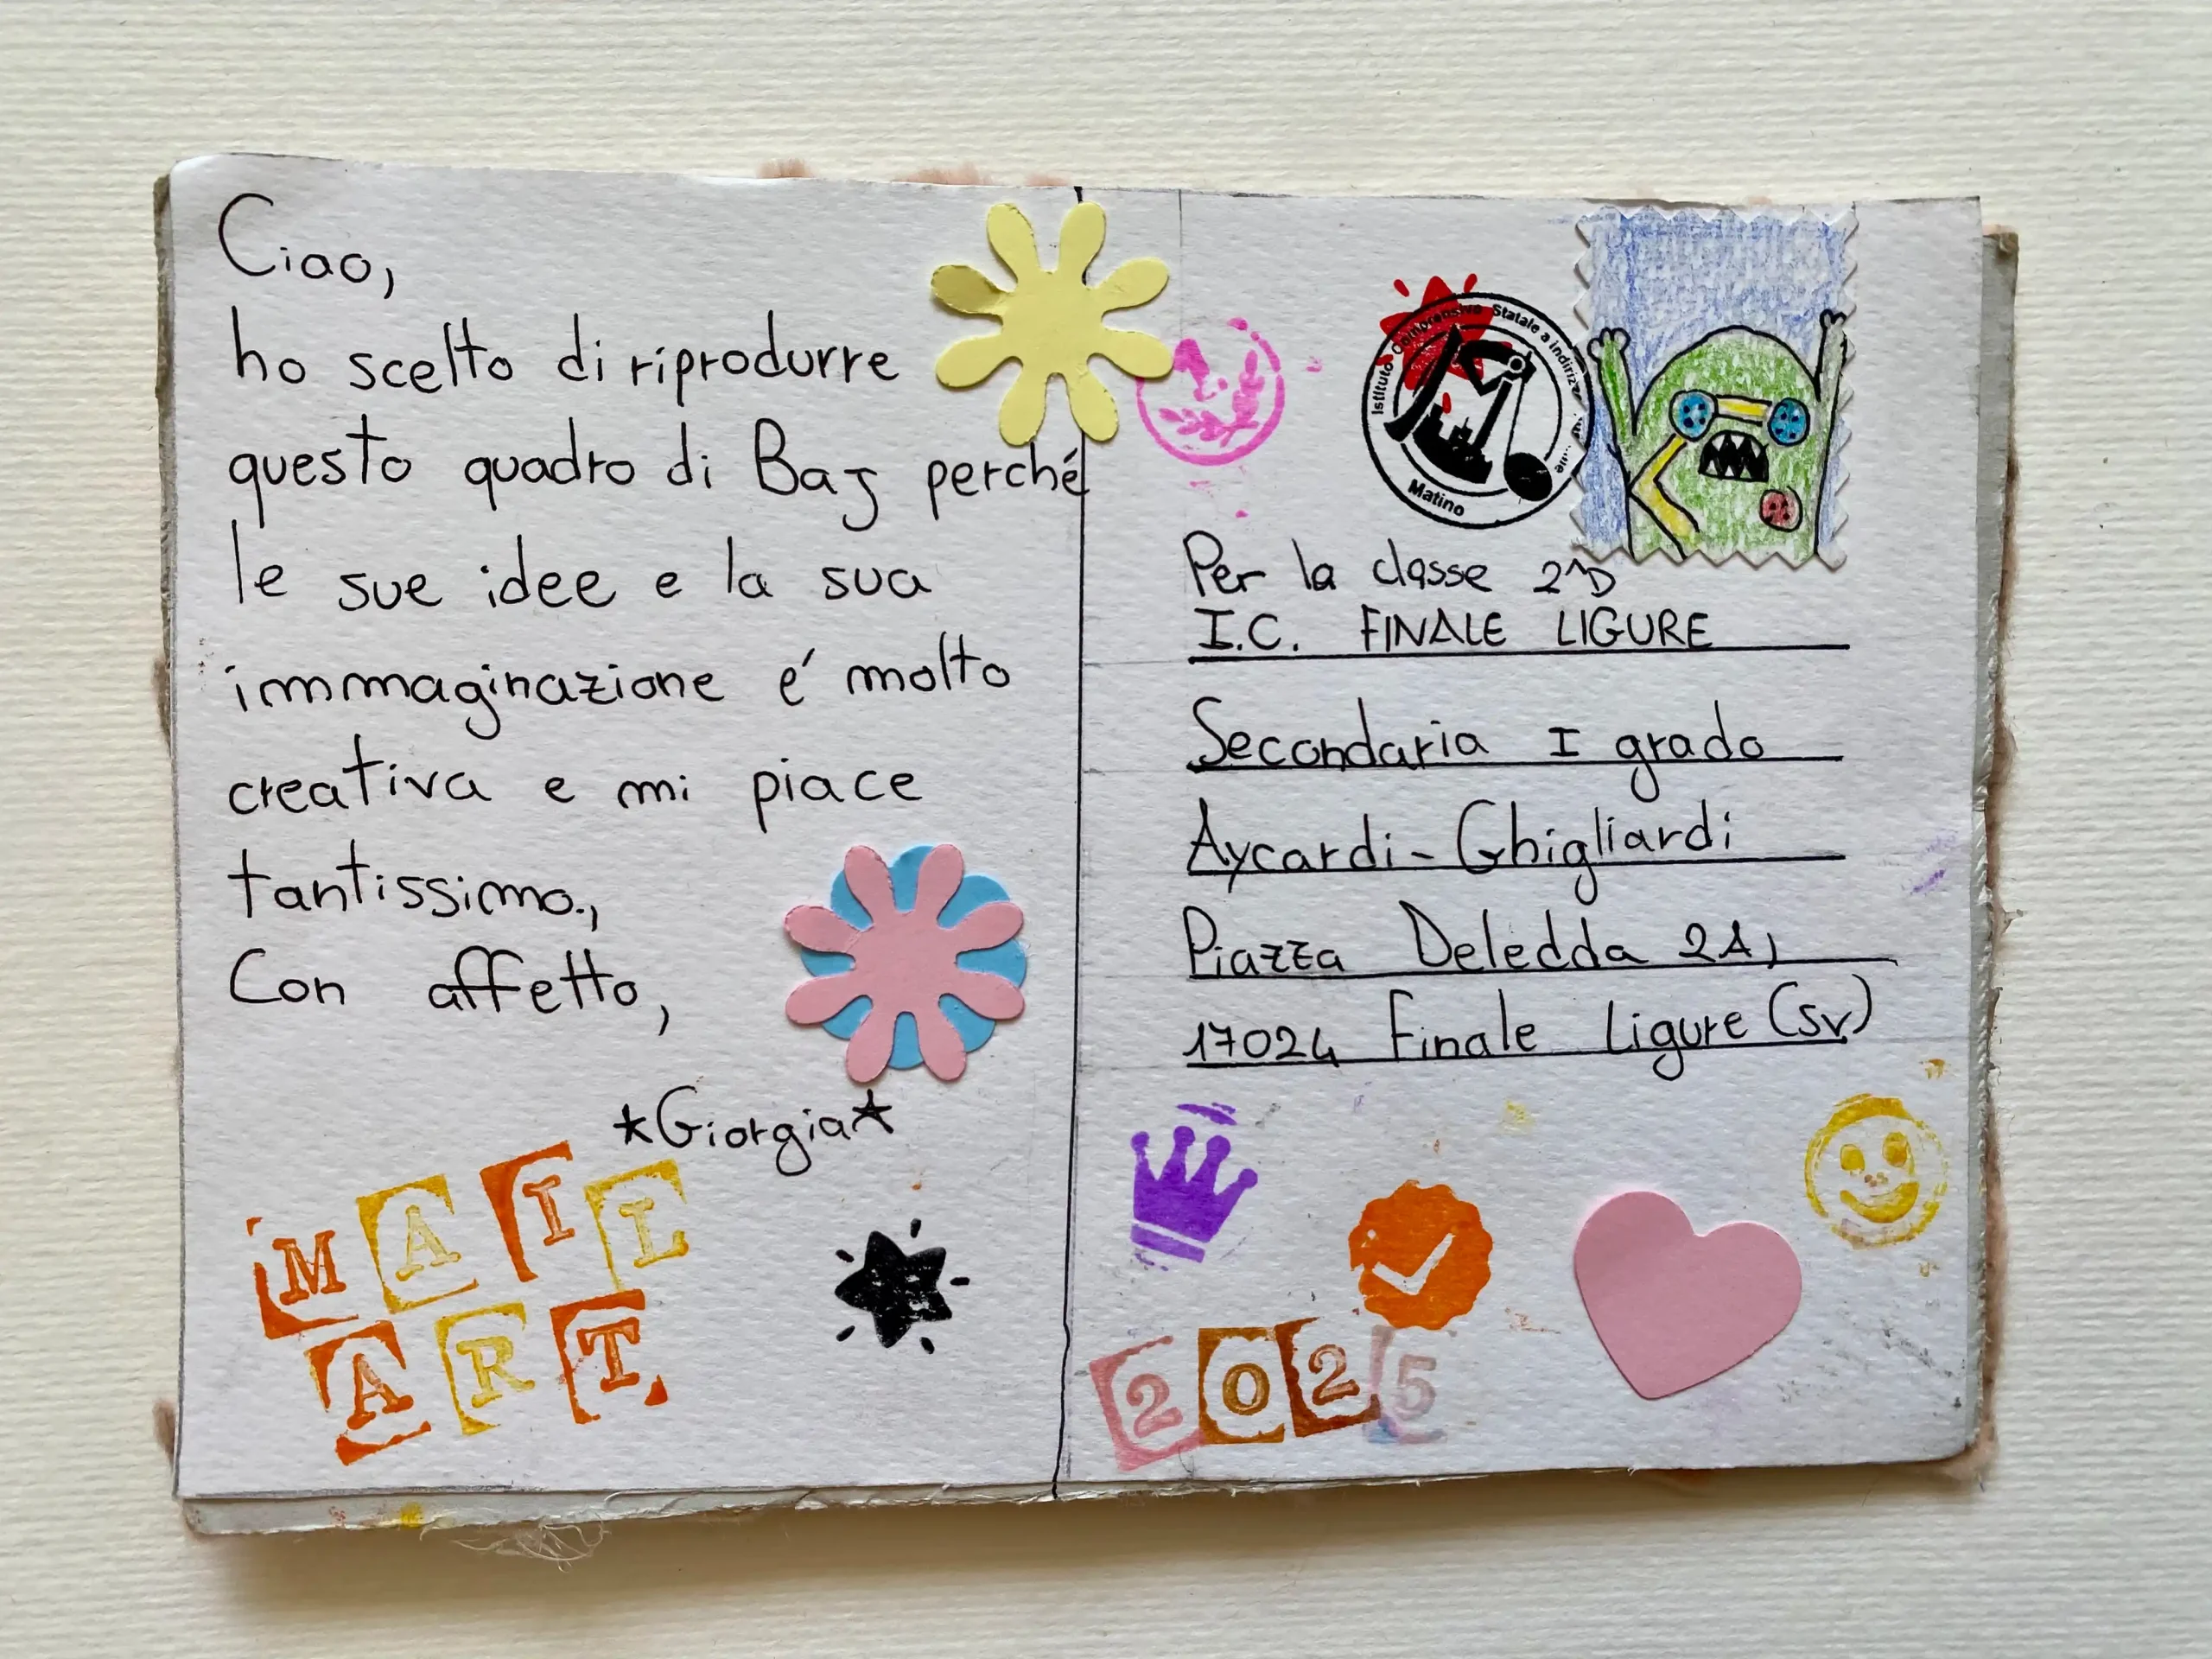 Ciao,
ho scelto di riprodurre
questo quadro di Baj perché
le sue idee e la sua
immaginazione é molto
creativa e mi piace
tantissimo.,
Con affetto,
*Giorgia*
MAIL
ART
1.
Istituto Comprensivo Statale a indiriz
Matino
Per la classe 2^D
I.C. FINALE LIGURE
Secondaria I grado
Aycardi-Ghigliardi
Piazza Deledda 2A,
17024 Finale Ligure (SV)
2025